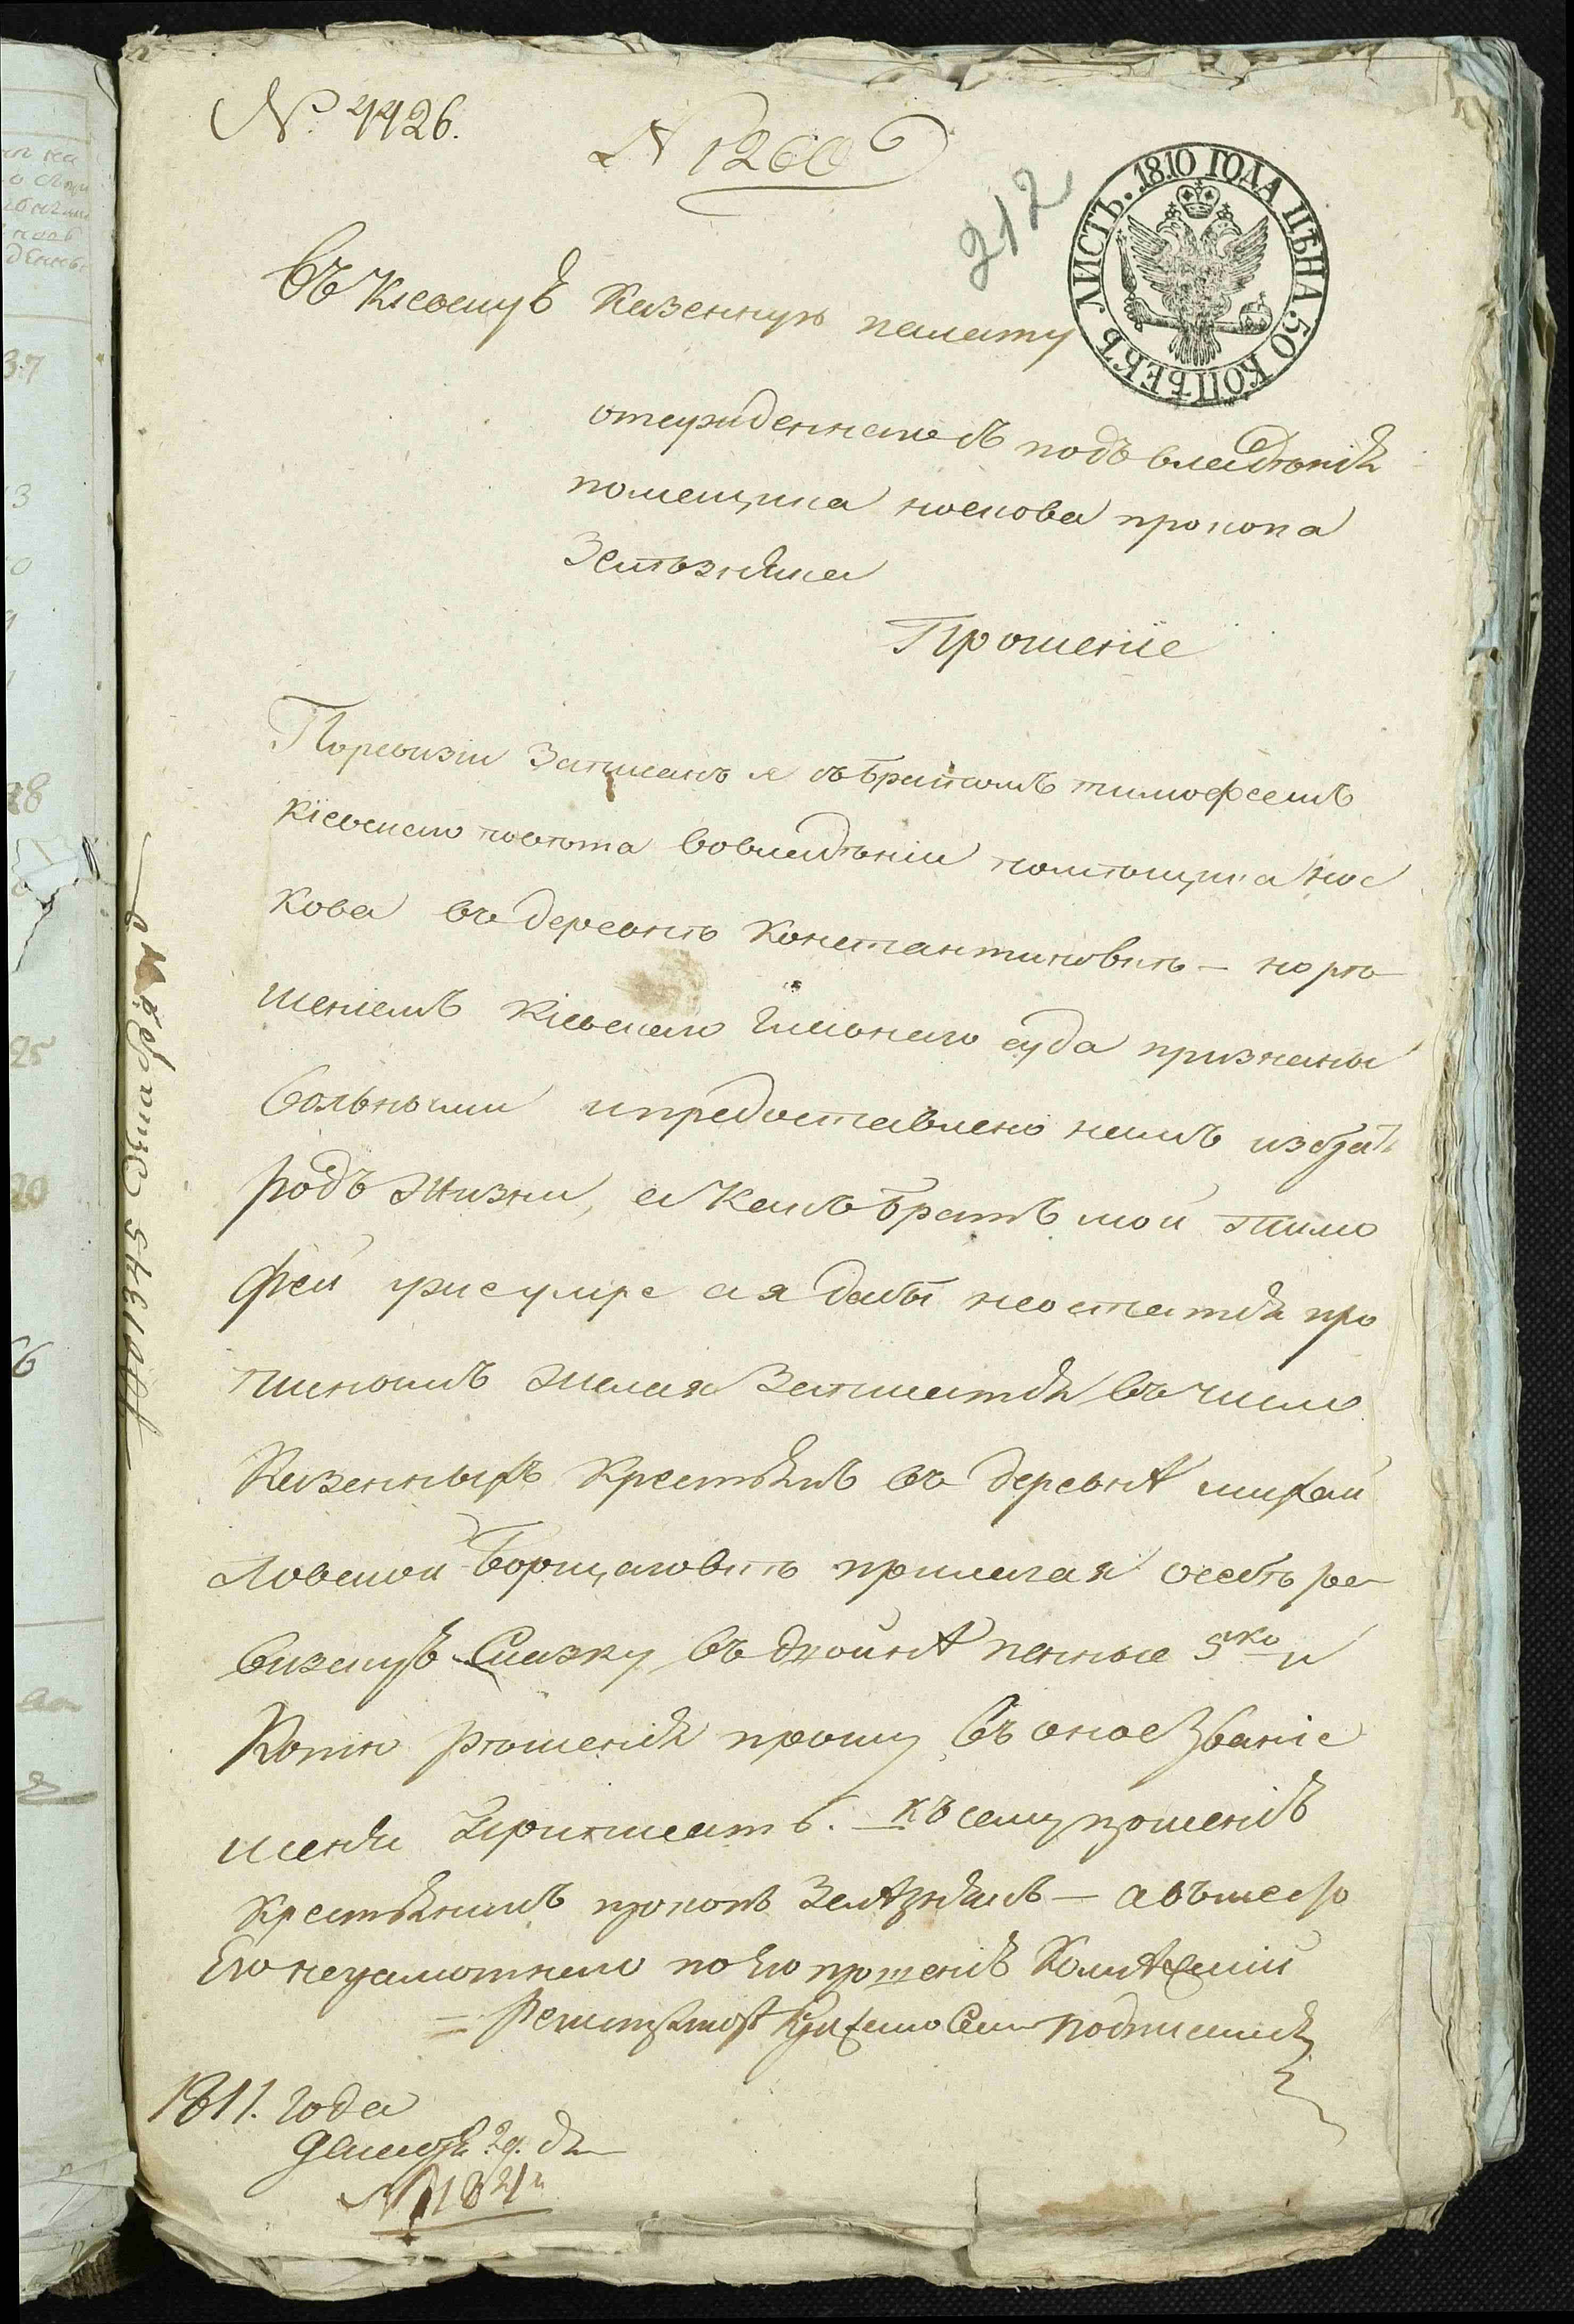 № 4426.
№ 1260
212
ЛИСТЪ. 1810 ГОДА ЦѢНА 50 КОПѢЕКЪ
Въ Кіевскую Казенную палату
отсужденнаго съ подъ владѣнія
помещика носкова прокопа
Зелѣзняка
Прошеніе
Поревизіи Записанъ я съ братомъ тимофеемъ
кіевскаго повѣта вовладѣніи помѣщика нос
кова въ деревнѣ Константиновкѣ – но рѣ
шеніемъ Кіевскаго Главнаго суда признаны
вольными ипредоставлено намъ избрать
родъ жизни, а какъ братъ мой тимо
фей уже умре ая дабы неостатся про
пискомъ желая Записатся въ число
Казенныхъ Крестянъ въ деревнѣ михай
ловской Борщаговкѣ прилагая осебѣ ре
визскую Сказку въ двойнѣ пенные 5 ко и
Копію рѣшенія прошу въ оное Званіе
меня Приписать. къ сему прошенію
Крестянинъ прокопъ Зелѣзнякъ – а вместо
Его неграмотнаго по Его прошенію Колѣжскій
Регистраторъ подписался
1811. года
29. дня